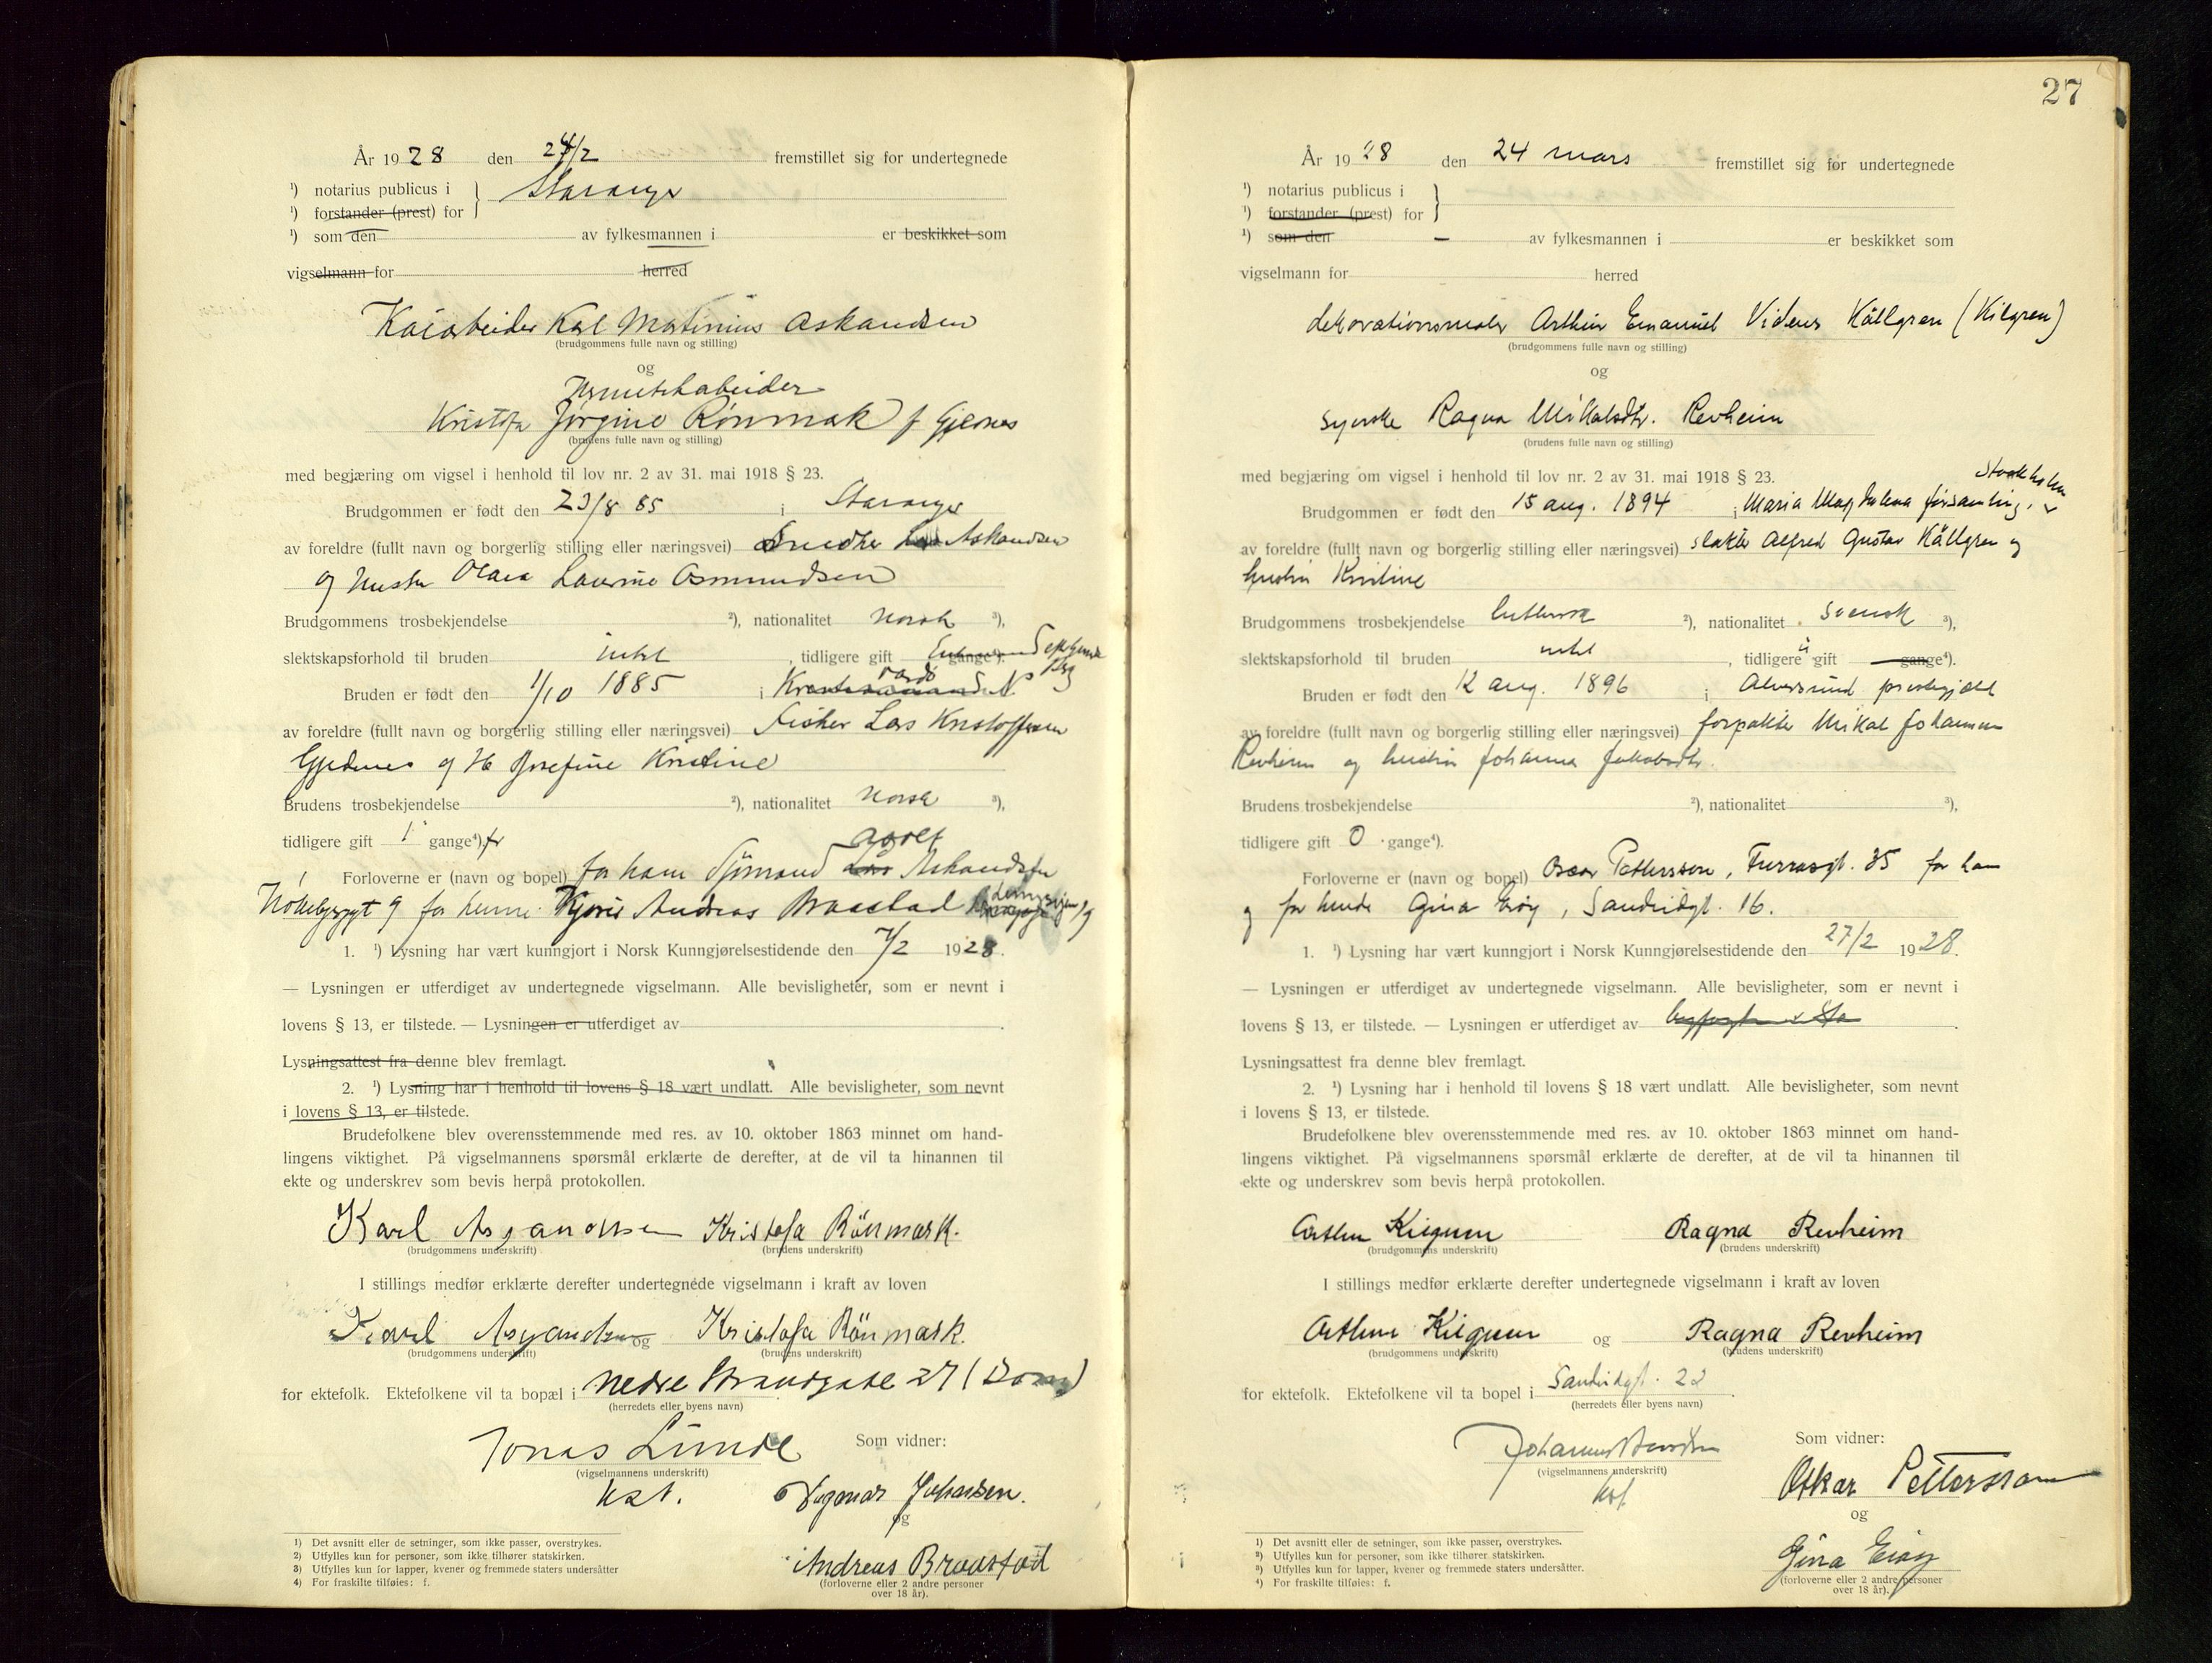 År 1928 den 24/2 fremstillet sig for undertegnede
¹) notarius publicus i Stavanger
¹) forstander (prest) for
¹) som den av fylkesmannen i er beskikket som
vigselmann for herred
Kaiarbeider Karl Martinius Askandsen
(brudgommens fulle navn og stilling)
og
Hermetikarbeider
Kristofa Jørgine Rönmark f Gjernes
(brudens fulle navn og stilling)
med begjæring om vigsel i henhold til lov nr. 2 av 31. mai 1918 § 23.
Brudgommen er født den 23/8 85 i Stavanger
av foreldre (fullt navn og borgerlig stilling eller næringsvei) Snedker Askandsen
og Hustru Olava Laurine Asmundsen
Brudgommens trosbekjendelse ²), nationalitet Norsk ³),
slektskapsforhold til bruden intet , tidligere gift gange⁴).
Bruden er født den 1/10 1885 i
av foreldre (fullt navn og borgerlig stilling eller næringsvei) Fisker Lars Kristoffersen
og H Josefine Kristine
Brudens trosbekjendelse ²), nationalitet Norsk ³),
tidligere gift 1 gange⁴). fr
Forloverne er (navn og bopel) for ham Sjömand Askandsen
9 for henne Andreas Braastad 19
1. ¹) Lysning har vært kunngjort i Norsk Kunngjørelsestidende den 7/2 1928.
— Lysningen er utferdiget av undertegnede vigselmann. Alle bevisligheter, som er nevnt i
lovens § 13, er tilstede. — Lysningen er utferdiget av .
Lysningsattest fra denne blev fremlagt.
2. ¹) Lysning har i henhold til lovens § 18 vært undlatt. Alle bevisligheter, som nevnt
i lovens § 13, er tilstede.
Brudefolkene blev overensstemmende med res. av 10. oktober 1863 minnet om hand-
lingens viktighet. På vigselmannens spørsmål erklærte de derefter, at de vil ta hinannen til
ekte og underskrev som bevis herpå protokollen.
Karl Asgandsen Kristofa Rönmark.
(brudgommens underskrift) (brudens underskrift)
I stillings medfør erklærte derefter undertegnede vigselmann i kraft av loven
Karl Asgandsen og Kristofa Rönmark.
(brudgommens underskrift) (brudens underskrift)
for ektefolk. Ektefolkene vil ta bopæl i Nedre Strandgate 27
(herredets eller byens navn)
Jonas Lunde Som vidner:
(vigselmannens underskrift)
kst. Johansen.
og
Andreas Braastad
(forloverne eller 2 andre personer
over 18 år).
¹) Det avsnitt eller de setninger, som ikke passer, overstrykes.
²) Utfylles kun for personer, som ikke tilhører statskirken.
³) Utfylles kun for lapper, kvener og fremmede staters undersåtter
⁴) For fraskilte tilføies: f.
27
År 1928 den 24 mars fremstillet sig for undertegnede
¹) notarius publicus i
¹) forstander (prest) for
¹) som den av fylkesmannen i er beskikket som
vigselmann for herred
dekorationsmaler Arthur Emanuel Videus Källgren (Kilgren)
(brudgommens fulle navn og stilling)
og
syerske Ragna Mikalsdtr. Revheim
(brudens fulle navn og stilling)
med begjæring om vigsel i henhold til lov nr. 2 av 31. mai 1918 § 23.
Stockholm
Brudgommen er født den 15 aug. 1894 i Maria Magdalena församling,
av foreldre (fullt navn og borgerlig stilling eller næringsvei) slakter Alfred Gustav Källgren og
hustru Kristine
Brudgommens trosbekjendelse luthersk ²), nationalitet svensk ³),
slektskapsforhold til bruden intet , tidligere gift gange⁴).
Bruden er født den 12 aug. 1896 i Alversund prestegjeld
av foreldre (fullt navn og borgerlig stilling eller næringsvei) forpakter Mikal Johannes
Revheim og hustru Johanna Jakobsdtr.
Brudens trosbekjendelse ²), nationalitet ³),
tidligere gift 0 gange⁴).
Forloverne er (navn og bopel) Oscar Pettersson, Furrasgt. 35 for ham
og for hende Gina Eröy, Sandvidgt. 16.
1. ¹) Lysning har vært kunngjort i Norsk Kunngjørelsestidende den 27/2 1928.
— Lysningen er utferdiget av undertegnede vigselmann. Alle bevisligheter, som er nevnt i
lovens § 13, er tilstede. — Lysningen er utferdiget av .
Lysningsattest fra denne blev fremlagt.
2. ¹) Lysning har i henhold til lovens § 18 vært undlatt. Alle bevisligheter, som nevnt
i lovens § 13, er tilstede.
Brudefolkene blev overensstemmende med res. av 10. oktober 1863 minnet om hand-
lingens viktighet. På vigselmannens spørsmål erklærte de derefter, at de vil ta hinannen til
ekte og underskrev som bevis herpå protokollen.
Arthur Kilgren Ragna Revheim
(brudgommens underskrift) (brudens underskrift)
I stillings medfør erklærte derefter undertegnede vigselmann i kraft av loven
Arthur Kilgren og Ragna Revheim
(brudgommens underskrift) (brudens underskrift)
for ektefolk. Ektefolkene vil ta bopel i Sandvidgt. 22 .
(herredets eller byens navn)
Som vidner:
(vigselmannens underskrift)
kst. Oskar Pettersson
og
Gina Eröy
(forloverne eller 2 andre personer
over 18 år).
¹) Det avsnitt eller de setninger, som ikke passer, overstrykes.
²) Utfylles kun for personer, som ikke tilhører statskirken.
³) Utfylles kun for lapper, kvener og fremmede staters undersåtter.
⁴) For fraskilte tilføies: f.